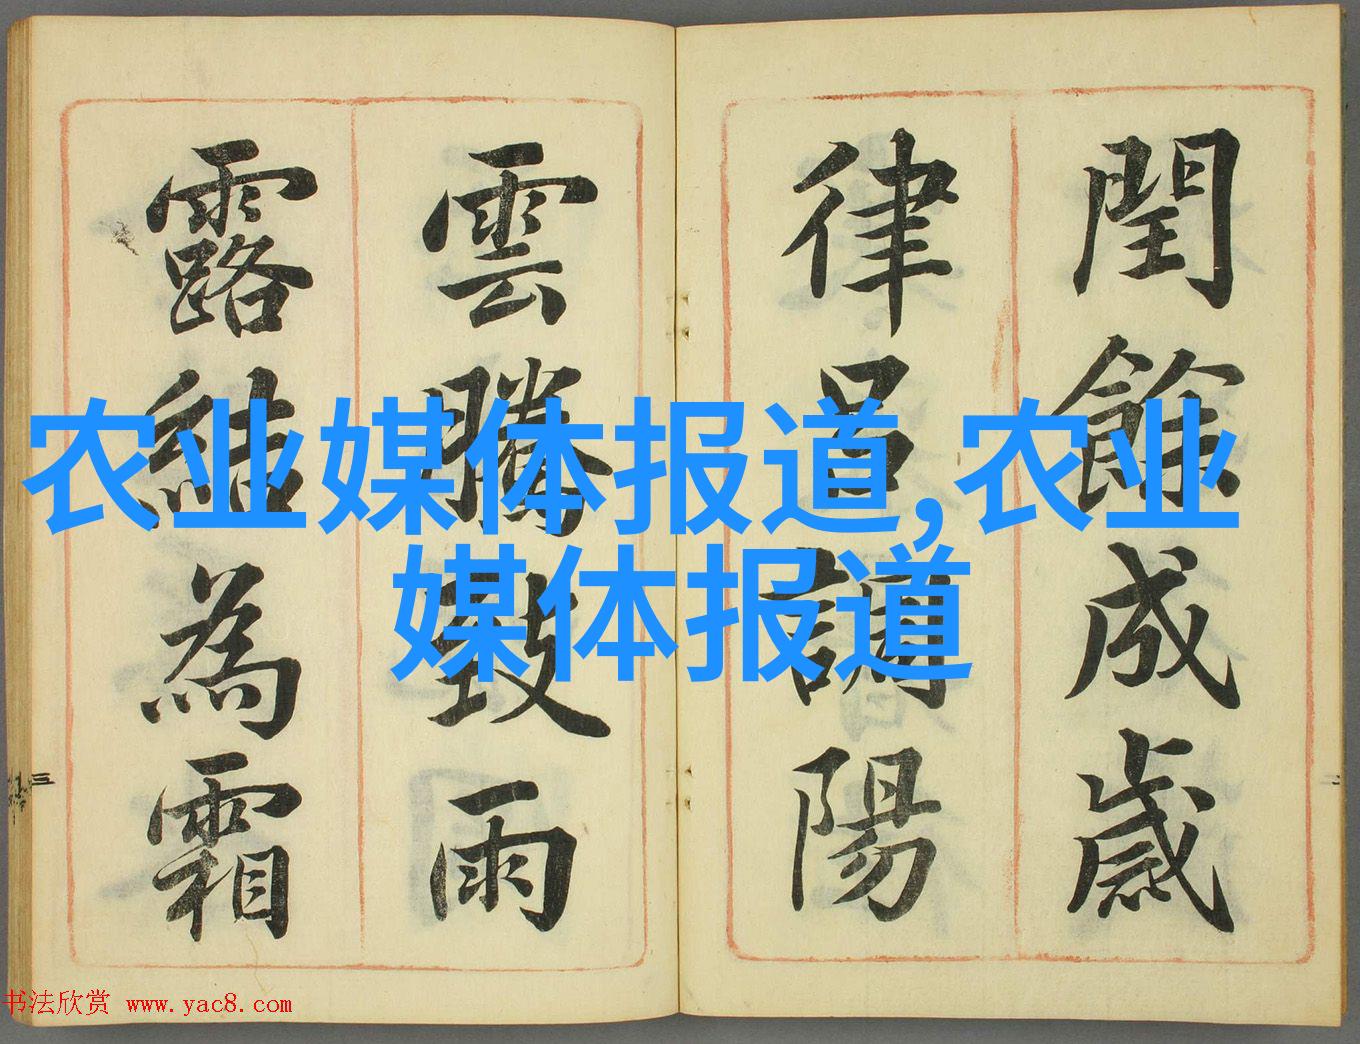 閏餘成歲
律呂調陽
雲騰致雨
露結為霜
农业媒体报道,农业
媒体报道
三
二
书法欣赏 www.yac8.com